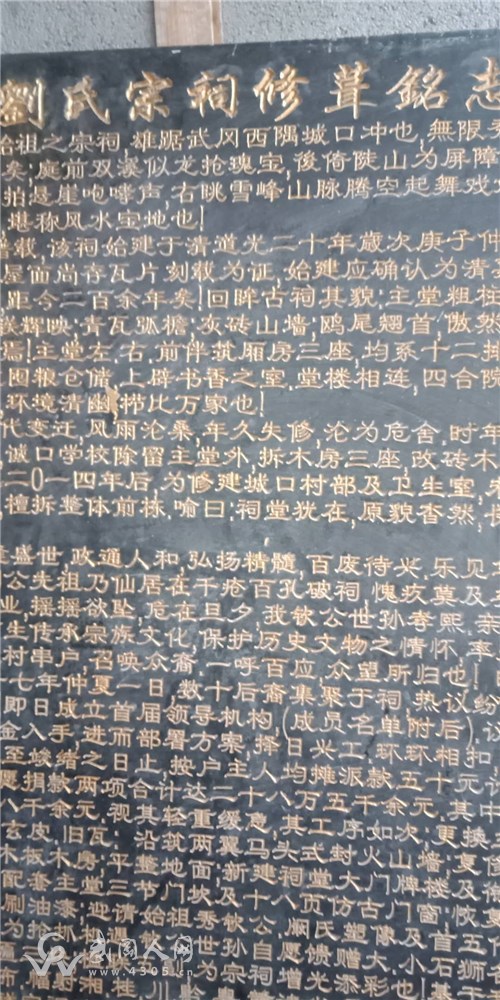 劉氏宗祠修葺銘志
始祖之宗祠,雄踞武冈西隅城口冲也,無限
矣,庭前双溪似龙抢瑰宝,後倚陡山为屏障
拍悬崖咆哮声,右眺雪峰山脉腾空起舞戏
堪称风水宝地也!
载,该祠始建于清道光二十年歲次庚子仲
屋面尚存瓦片刻载为证,始建应确认为清
距今二百余年矣!回眸古祠其貌:主堂粗柱
辉映;青瓦弧檐;灰砖山墙,鸥尾翘首,傲然
焉!主堂左、右、前伴筑厢房三座,均系十二
囤粮仓储,上辟书香之室.堂楼相连,四合院
环境清幽,栉比万家也!
代变迁,风雨沧桑,年久失修,沦为危舍,时年
诚口学校除留主堂外,拆木房三座,改砖木
二0一四年后,为修建城口村部及卫生室,
擅拆整体前栋,喻曰:祠堂犹在,原貌杳然,
盛世,政通人和,弘扬精髓,百废待兴.乐见
公先祖乃仙居在千疮百孔破祠,愧疚莫及
业,摇摇欲坠,危在旦夕,我钦公世孙孝熙、
生传承宗族文化,保护历史文物之情怀,率
村串户,召唤众裔一呼百应,众望所归也!
七年仲夏一日,数十后裔集聚于祠,热议纷
即日成立首届领导机构,(成员名单附后).议
金入手,进而部署方案,择日兴工,环环相扣
至竣绪之日止,按户主人均摊派款五十元
愿捐款两项合计达二十八万五千余元.其中
八千余元.视其轻重缓急,其工序如次:更换
玄皮、旧瓦;沿筑两翼马头式封火山墙;复
木板木房;平整地面;新建祠堂大门牌楼及
配套主堂三节门坎及十八页仿古门窗;
刷油漆;迎请始祖秀钦公、阙氏塑像及五
为抢抓机遇,世孙自愿馈赠大、小石狮
世宗祠增光添彩
布,幅射湘、桂、川、黔
武冈人网
www.4305.cn